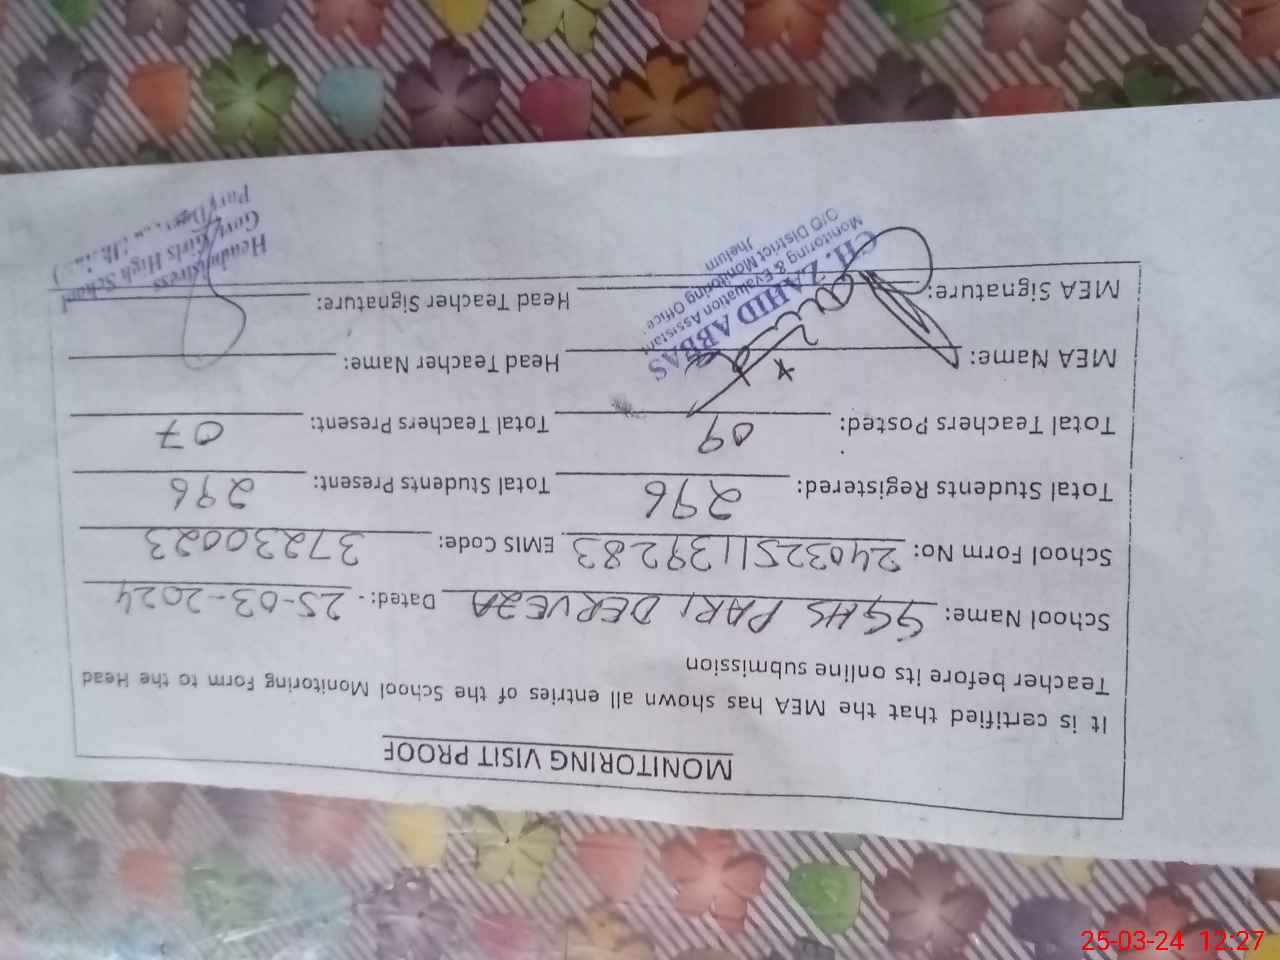 MONITORING VISIT PROOF
It is certified that the MEA has shown all entries of the School Monitoring Form to the Head
Teacher before its online submission
School Name: GGHS PARI DERVEZA Dated: - 25-03-2024
School Form No: 2403251139283 EMIS Code: 37230023
Total Students Registered: 296 Total Students Present: 296
Total Teachers Posted: 09 Total Teachers Present: 07
MEA Name: Head Teacher Name:
MEA Signature: Head Teacher Signature:
CH. ZAHID ABBAS
Monitoring & Evaluation Assistant
O/O District Monitoring Office
Jhelum
Headmistress
Govt. Girls High School
25-03-24 12:27